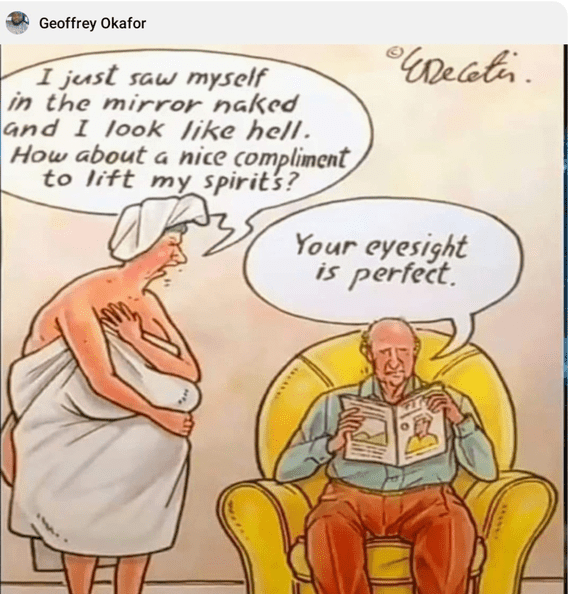 Geoffrey Okafor
I just saw myself
in the mirror naked
and I look like hell.
How about a nice compliment
to lift my spirits?
Your eyesight
is perfect.